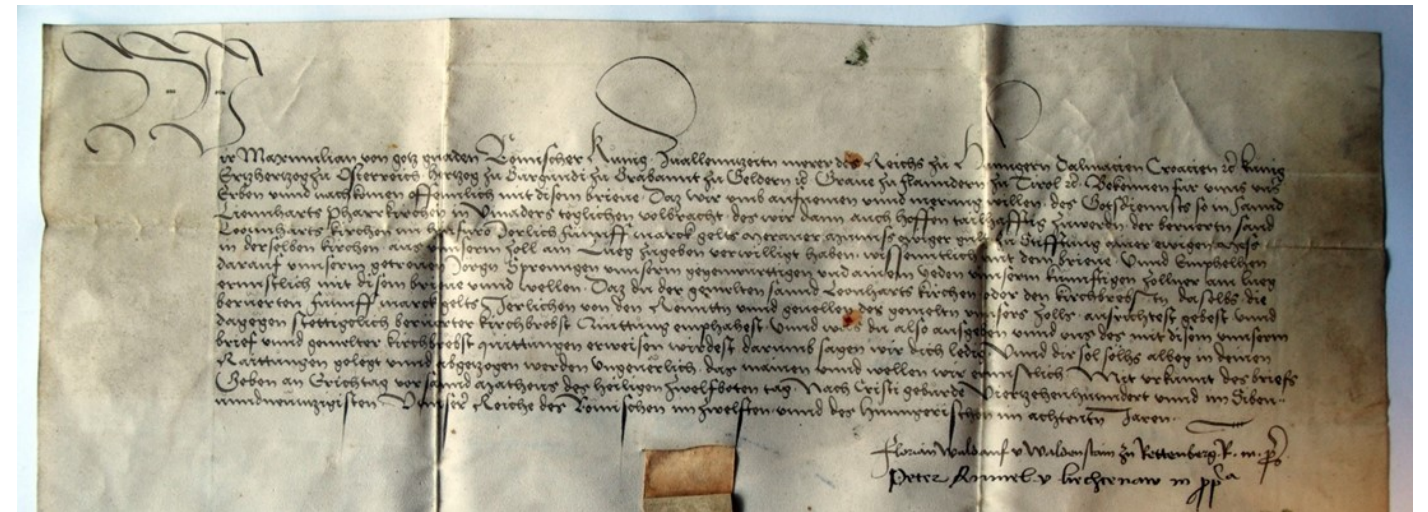 Wir Maximilian von gots gnaden Römischer Kunig zuallenntzeitn merer des Reichs zu Hungern Dalmacien Croacien etc kunig
Ertzhertzog zu Österreich hertzog zu Burgundi zu Brabannt zu Geldern etc Grave zu Flanndern zu Tirol etc Bekennen für unns unnser
Erben und nachkomen offennlich mit disem brieve Daz wir umb aufnemen unnd merung willen des Gotsdiennsts so in sannd
Lienharts Pharrkirchen in Vinaders teglichen volbracht des wir dann auch hoffen tailhafftig zuwerden der beruertn sand
Leonharts kirchen im hinfuro Jerlich fünnff marck gelts Meraner Münnss ewiger gült zu Stifftung einer ewigen Mess
in derselben kirchen aus unnserm zoll am Lueg zugeben verwilligt haben wissenntlich mit dem brieve Unnd Emphelhen
darauf unnserm getrewen Jorgn Sprenngen unnserm gegenwürttigen und ainem yeden unnserm kunfftigen zollner am lueg
ernnstlich mit disem brieve unnd wellen Daz du der gemelten sannd Leonharts kirchen oder den kirchbrobstn daselbs die
beruerten fünnff marck gelts Jerlichen von den Renntn unnd gevellen des gemeltn unnsers zolls ausrichtest gebest unnd
dagegen stettigclich beruerter kirchbrobst Quittung emphahest Unnd was du also ausgeben unnd uns des mit disem unnserm
brief und gemelter kirchbrobst quittungen erweisen wirdest darumb sagen wir dich ledig Unnd dir sol solhs albeg in deinen
Raittungen gelegt unnd abgezogen werden Ungeverlich das mainen unnd wellen wir ernnstlich Mit urkunnt des briefs
Geben an Erichtag vor sannd Matheus des heiligen zwelfboten tag Nach Cristi geburde Viertzehenhundert unnd im Siben
unndnewnnzigisten Unnserer Reiche des Römischen im zwelfften unnd des Hunngerischen im achtenntn Jaren
Florian Waldauf v Waldenstain zu Rettenberg R m pp
Peter Rumel v liechtenaw m ppa